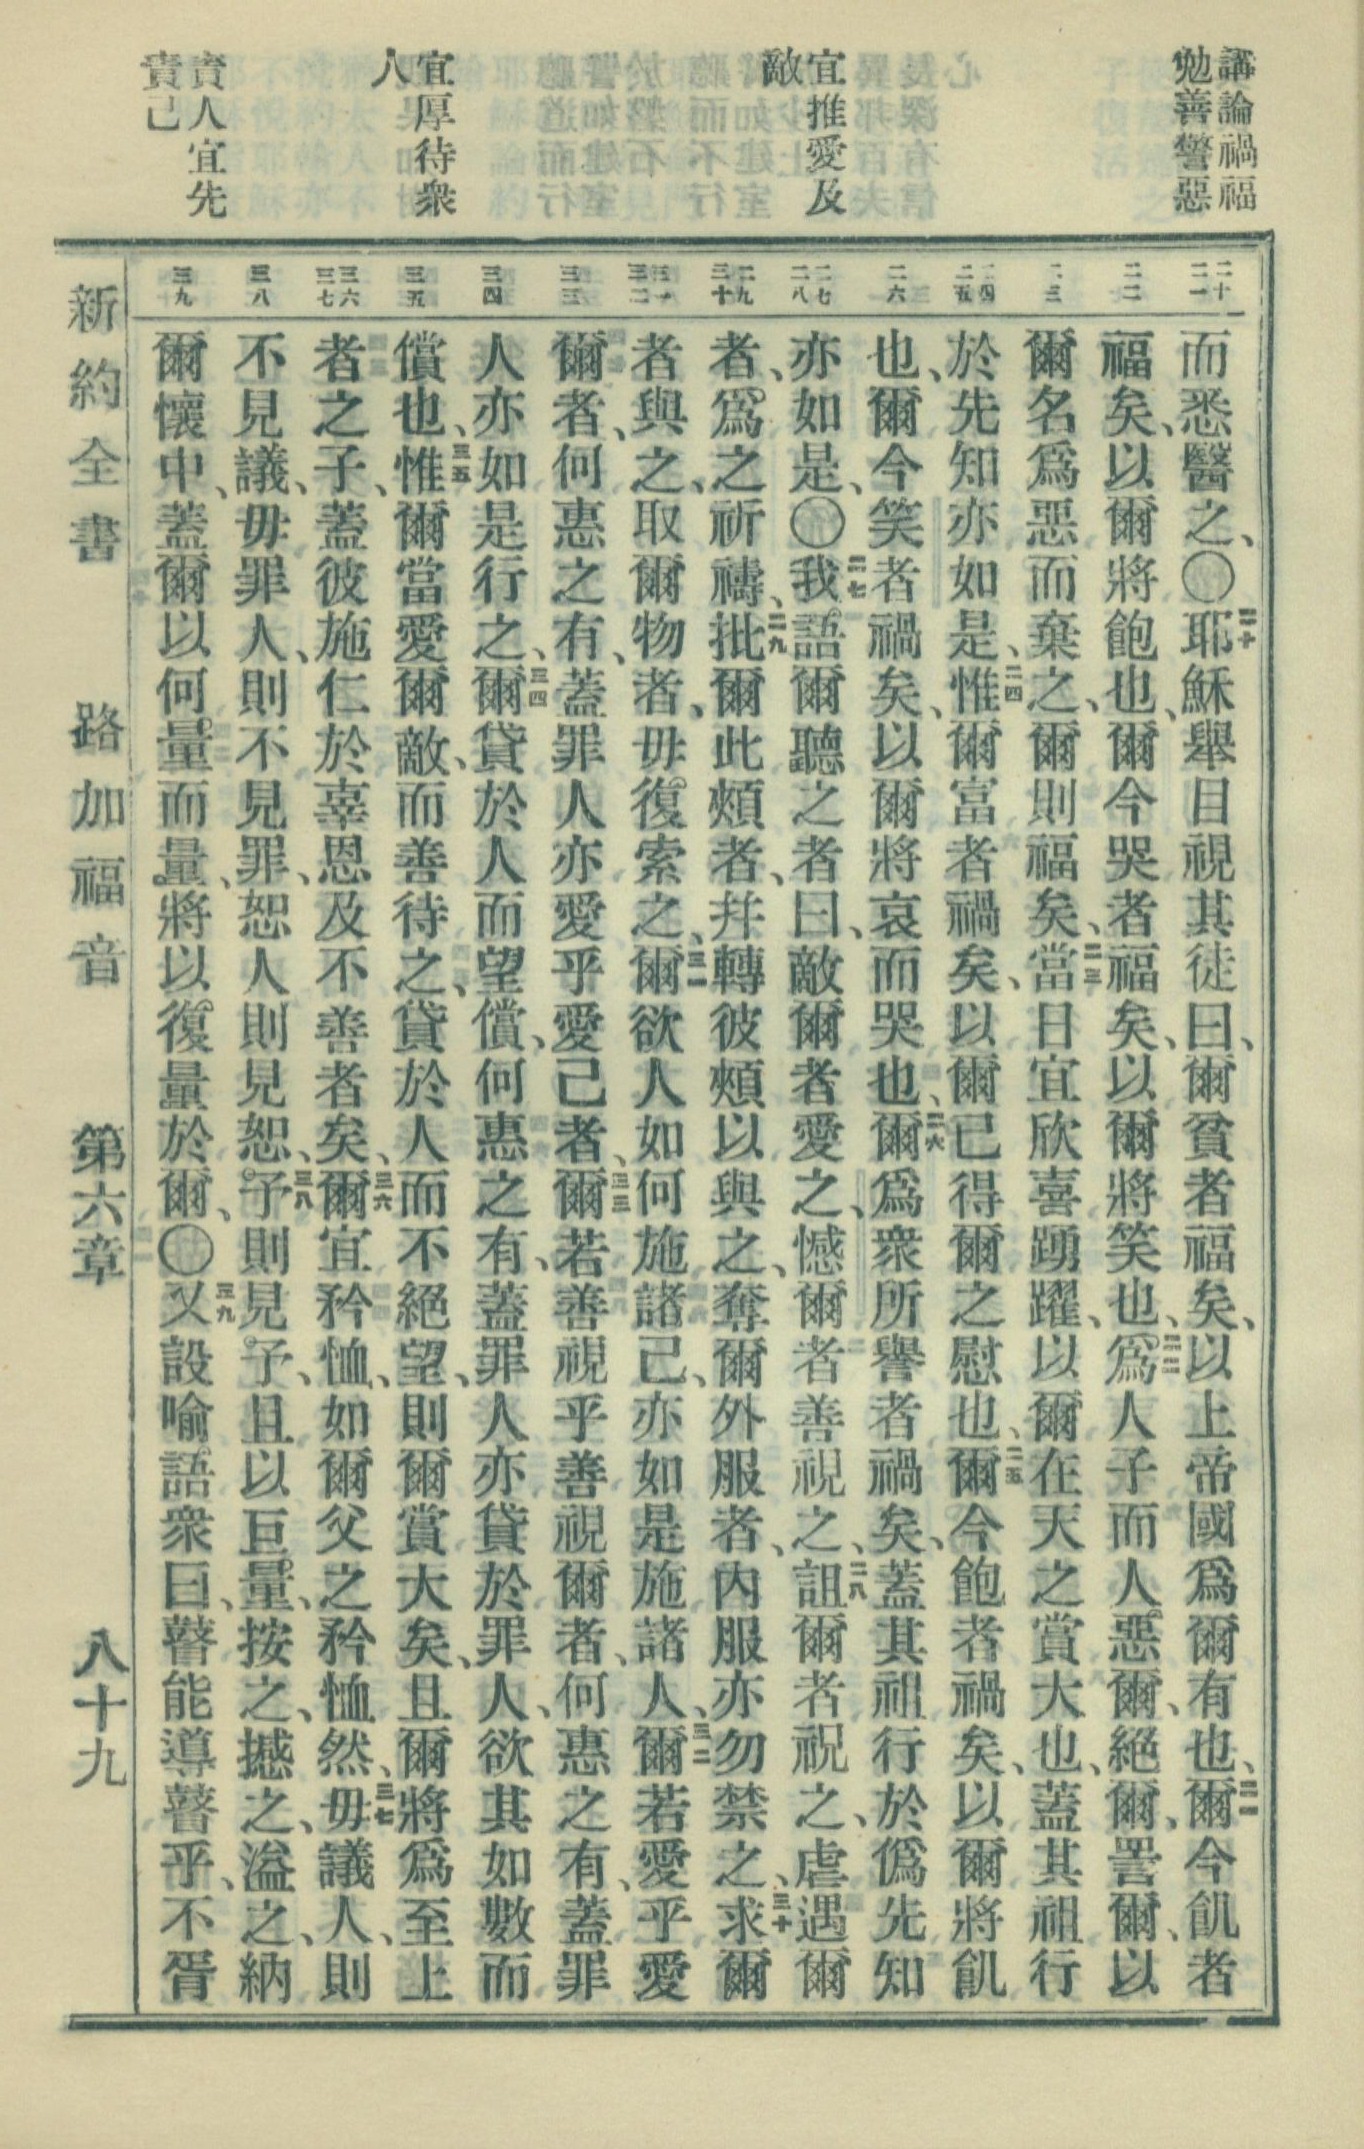 講論禍福
勉善警惡
宜推愛及
敵
宜厚待衆
人
責人宜先
責己
二十
二一
二二
二三
二四
二五
二六
二七
二八
二九
三十
三一
三二
三三
三四
三五
三六
三七
三八
三九
而悉醫之、〇二十耶穌舉目視其徒曰、爾貧者福矣、以上帝國爲爾有也、二一爾今飢者
福矣、以爾將飽也、爾今哭者福矣、以爾將笑也、二二爲人子而人惡爾、絕爾、詈爾、以
爾名爲惡而棄之、爾則福矣、二三當日宜欣喜踴躍、以爾在天之賞大也、蓋其祖行
於先知亦如是、二四惟爾富者禍矣、以爾已得爾之慰也、二五爾今飽者禍矣、以爾將飢
也、爾今笑者禍矣、以爾將哀而哭也、二六爾爲衆所譽者禍矣、蓋其祖行於僞先知
亦如是、〇二七我語爾聽之者曰、敵爾者愛之、憾爾者善視之、二八詛爾者祝之、虐遇爾
者、爲之祈禱、二九批爾此頰者、幷轉彼頰以與之、奪爾外服者、內服亦勿禁之、三十求爾
者與之、取爾物者、毋復索之、三一爾欲人如何施諸己、亦如是施諸人、三二爾若愛乎愛
爾者、何惠之有、蓋罪人亦愛乎愛己者、三三爾若善視乎善視爾者、何惠之有、蓋罪
人亦如是行之、三四爾貸於人而望償、何惠之有、蓋罪人亦貸於罪人、欲其如數而
償也、三五惟爾當愛爾敵、而善待之、貸於人而不絕望、則爾賞大矣、且爾將爲至上
者之子、蓋彼施仁於辜恩及不善者矣、三六爾宜矜恤、如爾父之矜恤然、三七毋議人、則
不見議、毋罪人、則不見罪、恕人則見恕、三八予則見予、且以巨量、按之、撼之、溢之、納
爾懷中、蓋爾以何量而量、將以復量於爾、〇三九又設喻語衆曰、瞽能導瞽乎、不胥
新約全書　路加福音　第六章　八十九